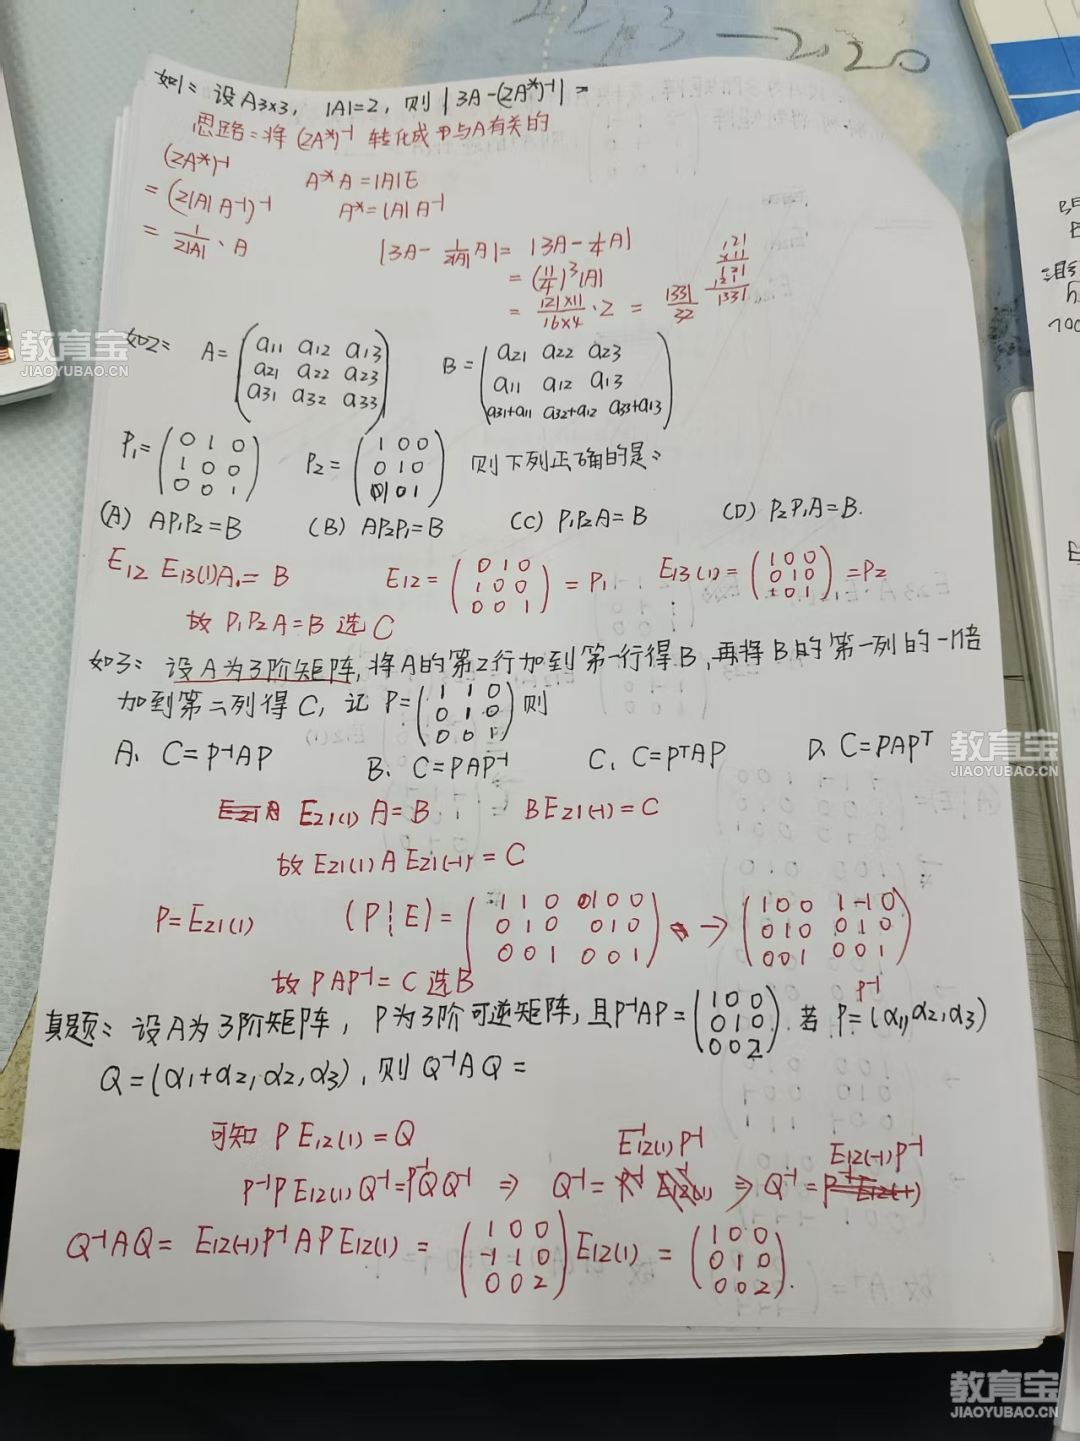 22,3—2,20
如1: 设A3×3, |A|=2, 则|3A-(2A*)⁻¹|=
思路:将(2A*)⁻¹转化成与A有关的
(2A*)⁻¹
A*A=|A|E
=(2|A|A⁻¹)⁻¹
A*=|A|A⁻¹
=1/(2|A|)·A
|3A-1/(2|A|)A|=|3A-1/4A|
=(11/4)³|A|
=(121×11)/(16×4)·2=1331/32
121
×11
121
121
1331
如2: A=(a11 a12 a13
a21 a22 a23
a31 a32 a33)
B=(a21 a22 a23
a11 a12 a13
a31+a11 a32+a12 a33+a13)
P1=(0 1 0
1 0 0
0 0 1)
P2=(1 0 0
0 1 0
1 0 1)
则下列正确的是:
(A) AP1P2=B (B) AP2P1=B (C) P1P2A=B (D) P2P1A=B.
E12 E13(1)A=B E12=(0 1 0
1 0 0
0 0 1)=P1
E13(1)=(1 0 0
0 1 0
1 0 1)=P2
故P1P2A=B选C
如3: 设A为3阶矩阵,将A的第2行加到第一行得B,再将B的第一列的-1倍
加到第二列得C, 记P=(1 1 0
0 1 0
0 0 1)则
A. C=P⁻¹AP B. C=PAP⁻¹ C. C=PᵀAP D. C=PAPᵀ
E21(1)A=B BE21(-1)=C
故E21(1)AE21(-1)=C
P=E21(1) (P¦E)=(1 1 0 1 0 0
0 1 0 0 1 0
0 0 1 0 0 1)→(1 0 0 1 -1 0
0 1 0 0 1 0
0 0 1 0 0 1)
P⁻¹
故PAP⁻¹=C选B
真题: 设A为3阶矩阵, P为3阶可逆矩阵,且P⁻¹AP=(1 0 0
0 1 0
0 0 2)若P=(α1,α2,α3)
Q=(α1+α2,α2,α3),则Q⁻¹AQ=
可知PE12(1)=Q
P⁻¹PE12(1)Q⁻¹=P⁻¹QQ⁻¹⇒Q⁻¹=E⁻¹12(1)P⁻¹⇒Q⁻¹=E12(-1)P⁻¹
Q⁻¹AQ=E12(-1)P⁻¹APE12(1)=(1 0 0
-1 1 0
0 0 2)E12(1)=(1 0 0
0 1 0
0 0 2).
教育宝
JIAOYUBAO.CN
教育宝
JIAOYUBAO.CN
教育宝
JIAOYUBAO.CN